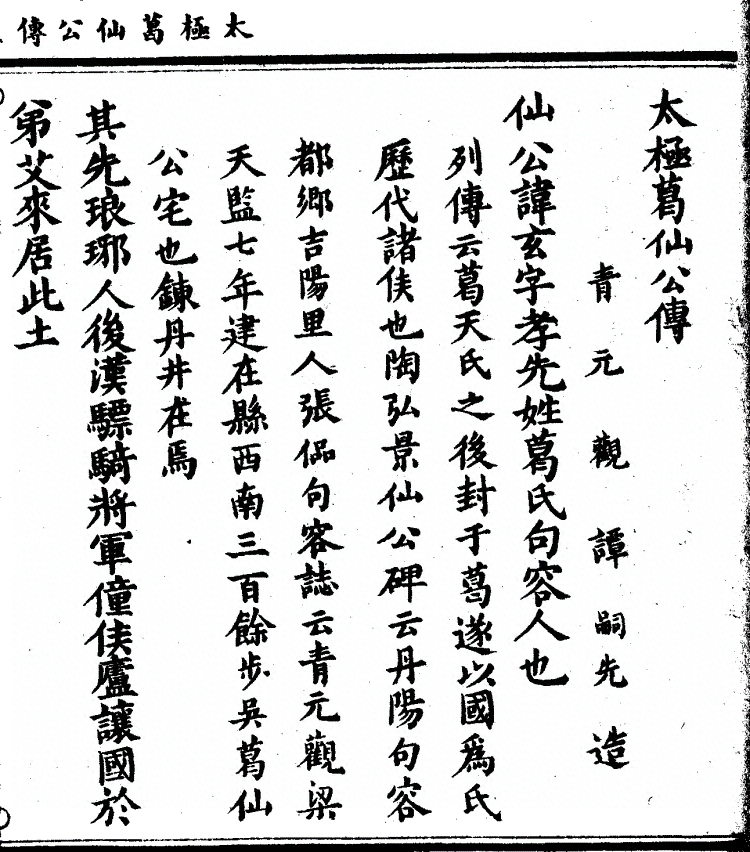 太極葛仙公傳
太極葛仙公傳
青元觀譚嗣先造
仙公諱玄字孝先姓葛氏句容人也
列傳云葛天氏之後封于葛遂以國爲氏
歷代諸侯也陶弘景仙公碑云丹陽句容
都鄉吉陽里人張侃句容誌云青元觀梁
天監七年建在縣西南三百餘步吳葛仙
公宅也鍊丹井在焉
其先琅琊人後漢驃騎將軍僮侯廬讓國於
弟艾來居此土